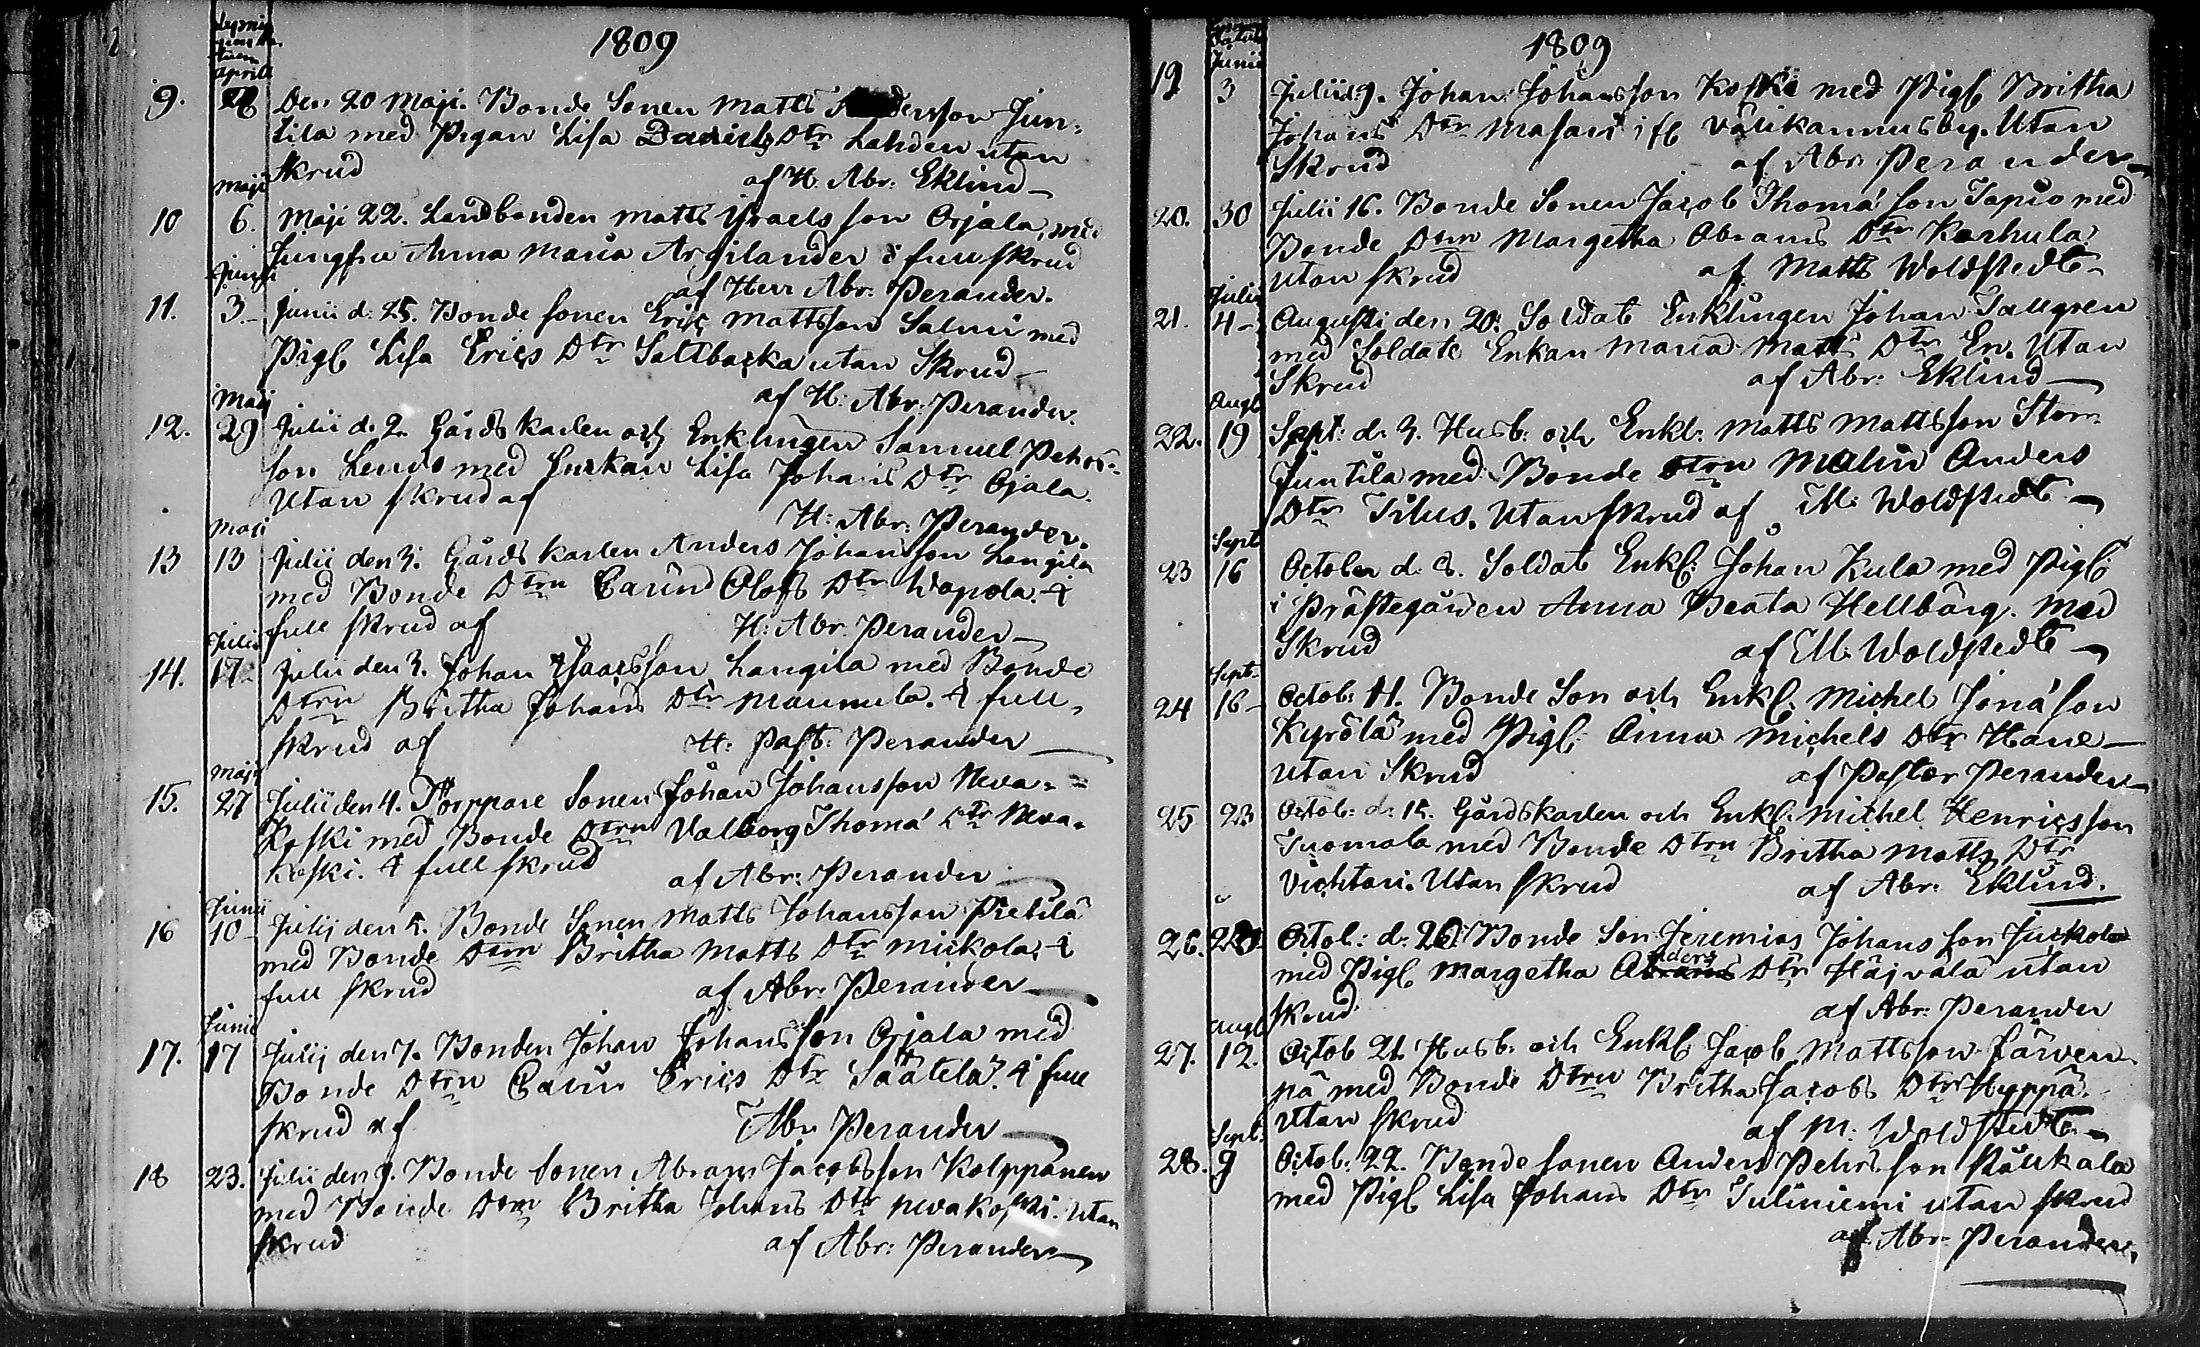 1809
April
9. 28 Den 20 Maji. Bonde Sonen Matts Andersson Jun-
tila med Pigan Lisa Daniels Dtr Lahden utan
Skrud af H. Abr: Eklund
Maji
10 6. Maji 22. Landbonden Matts Ysraelsson Orjala, med
Jungfru Anna Maria Argilander i full skrud
af Herr Abr: Perander.
Junii
11. 3 Junii d: 25. Bonde sonen Eric Mattsson Salmi med
Pig: Lisa Erics Dtr Saltbacka utan Skrud
af H: Abr: Perander.
Maji
12. 29 Julii d. 2. Gårds karlen och Enklingen Samuel Pehrs-
son Lendo med Enkan Lisa Johans Dtr Ojala.
Utan skrud af
H: Abr: Perander.
Maji
13 13 Julii den 3. Gårds karlen Anders Johansson Langila
med Bonde Dtrn Carin Olofs Dtr Wapola. i
full skrud af H: Abr. Perander
Julii
14. 17 Julii den 3. Johan Ysaacsson Langila med Bonde
Dtrn Britha Johans Dtr Maunula. i full
skrud af H: Past: Perander
Maji
15. 27 Julii den 4. Torppare Sonen Johan Johansson Neva-
koski med Bonde Dtrn Valborg Thomæ Dtr Neva-
koski. i full skrud af Abr: Perander
Junii
16 10 Julij den 5. Bonde Sonen Matts Johansson Pietilä
med Bonde Dtrn Britha Matts Dtr Mickola, i
full skrud af Abr: Perander
Junii
17. 17 Julij den 7. Bonden Johan Johansson Orjala med
Bonde Dtrn Carin Erics Dtr Säätelä. i full
skrud af Abr Perander
18 23. Julii den 9. Bonde sonen Abram Jacobsson Kolppänen
med Bonde Dtrn Britha Johans Dtr Nevakoski. Utan
skrud af Abr: Perander
1809
Junii
19 3 Julii d. 9. Johan Johansson Koski med Pig: Britha
Johans Dtr Masari ifr Välikannus by. Utan
Skrud af Abr Perander
20. 30 Julii 16. Bonde Sonen Jacob Thomæ son Tapio med
Bonde Dtrn Margetha Abrams Dtr Karhula
utan skrud af Matts Woldstedt
Julii
21. 4 Augusti den 20. Soldats Enklingen Johan Tallgren
med Soldats Enkan Maria Matts Dtr En. Utan
Skrud af Abr: Eklund
Aug:
22. 19 Sept: d. 3. Husb: och Enkl. Matts Mattsson Stor-
Juntila med Bonde Dtrn Malin Anders
Dtr Tilus. Utan skrud af M. Woldstedt
Sept
23 16 October d. 8. Soldat Enkl: Johan Kula med Pig:
i Prästegården Anna Beata Hellbärg. Med
Skrud af M. Woldstedt
Sept.
24 16 Octob: 11. Bonde Son och Enkl. Michel Jonæ son
Kyrölä med Pig: Anna Michels Dtr Hane
utan Skrud af Pastor Perander
25 23 Octob: d. 15. Gårdskarlen och Enkl. Michel Henricsson
Tuomala med Bonde Dtrn Britha Matts Dtr
Vichtari. Utan skrud af Abr: Eklund.
26. Octob: d. 20 Bonde Son Jeremias Johansson Juckola
nders
med Pig: Margetha Abrams Dtr Häjvälä utan
skrud af Abr: Perander
Aug:
27. 12. Octob 21. Husb: och Enkl: Jacob Mattsson Järven-
pä med Bonde Dtrn Britha Jacobs Dtr Hyppä.
Utan skrud af M: Woldstedt
Sept:
28. 9 Octob: 22. Bonde sonen Anders Pehrsson Raukala
med Pig: Lisa Johans Dtr Tuliniemi utan skrud
af Abr. Perander.